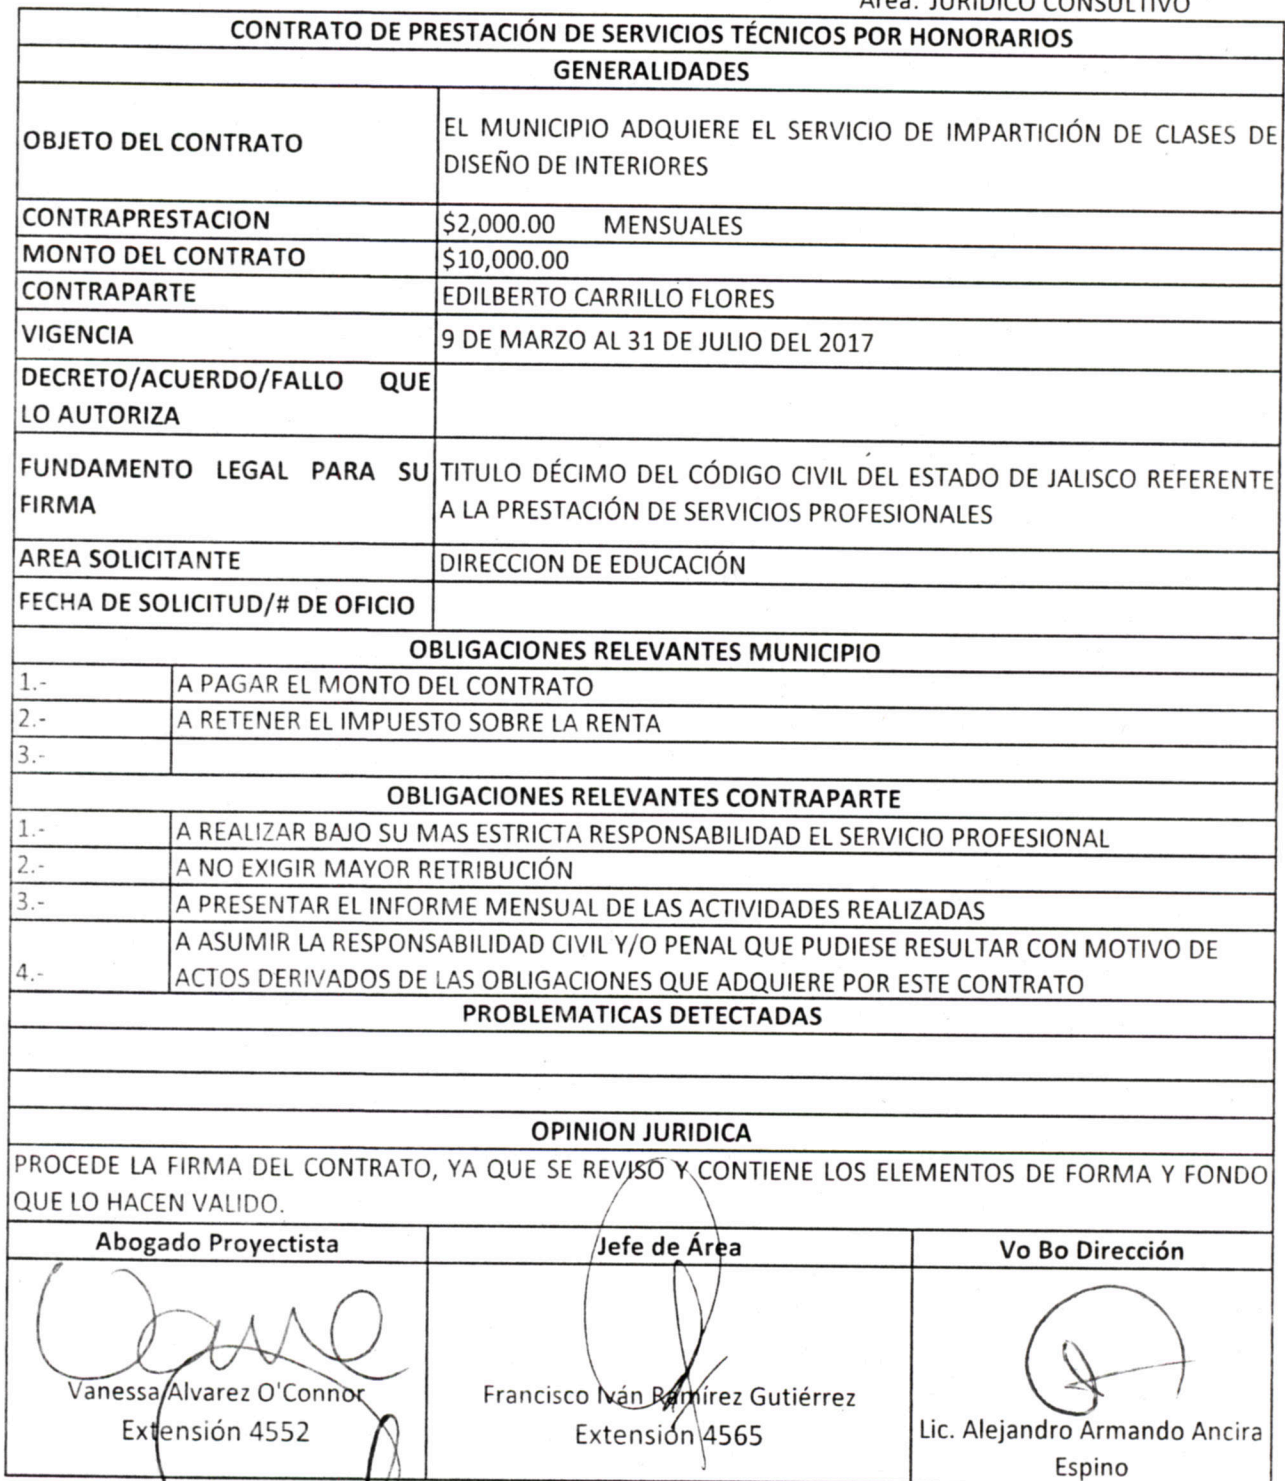 Area: JURIDICO CONSULTIVO
CONTRATO DE PRESTACIÓN DE SERVICIOS TÉCNICOS POR HONORARIOS
GENERALIDADES
OBJETO DEL CONTRATO
EL MUNICIPIO ADQUIERE EL SERVICIO DE IMPARTICIÓN DE CLASES DE
DISEÑO DE INTERIORES
CONTRAPRESTACION
$2,000.00 MENSUALES
MONTO DEL CONTRATO
$10,000.00
CONTRAPARTE
EDILBERTO CARRILLO FLORES
VIGENCIA
9 DE MARZO AL 31 DE JULIO DEL 2017
DECRETO/ACUERDO/FALLO QUE
LO AUTORIZA
FUNDAMENTO LEGAL PARA SU
FIRMA
TITULO DÉCIMO DEL CÓDIGO CIVIL DEL ESTADO DE JALISCO REFERENTE
A LA PRESTACIÓN DE SERVICIOS PROFESIONALES
AREA SOLICITANTE
DIRECCION DE EDUCACIÓN
FECHA DE SOLICITUD/# DE OFICIO
OBLIGACIONES RELEVANTES MUNICIPIO
1.- A PAGAR EL MONTO DEL CONTRATO
2.- A RETENER EL IMPUESTO SOBRE LA RENTA
3.-
OBLIGACIONES RELEVANTES CONTRAPARTE
1.- A REALIZAR BAJO SU MAS ESTRICTA RESPONSABILIDAD EL SERVICIO PROFESIONAL
2.- A NO EXIGIR MAYOR RETRIBUCIÓN
3.- A PRESENTAR EL INFORME MENSUAL DE LAS ACTIVIDADES REALIZADAS
A ASUMIR LA RESPONSABILIDAD CIVIL Y/O PENAL QUE PUDIESE RESULTAR CON MOTIVO DE
4.- ACTOS DERIVADOS DE LAS OBLIGACIONES QUE ADQUIERE POR ESTE CONTRATO
PROBLEMATICAS DETECTADAS
OPINION JURIDICA
PROCEDE LA FIRMA DEL CONTRATO, YA QUE SE REVISO Y CONTIENE LOS ELEMENTOS DE FORMA Y FONDO
QUE LO HACEN VALIDO.
Abogado Proyectista
Jefe de Área
Vo Bo Dirección
Vanessa Alvarez O'Connor
Extensión 4552
Francisco Iván Ramírez Gutiérrez
Extensión 4565
Lic. Alejandro Armando Ancira
Espino